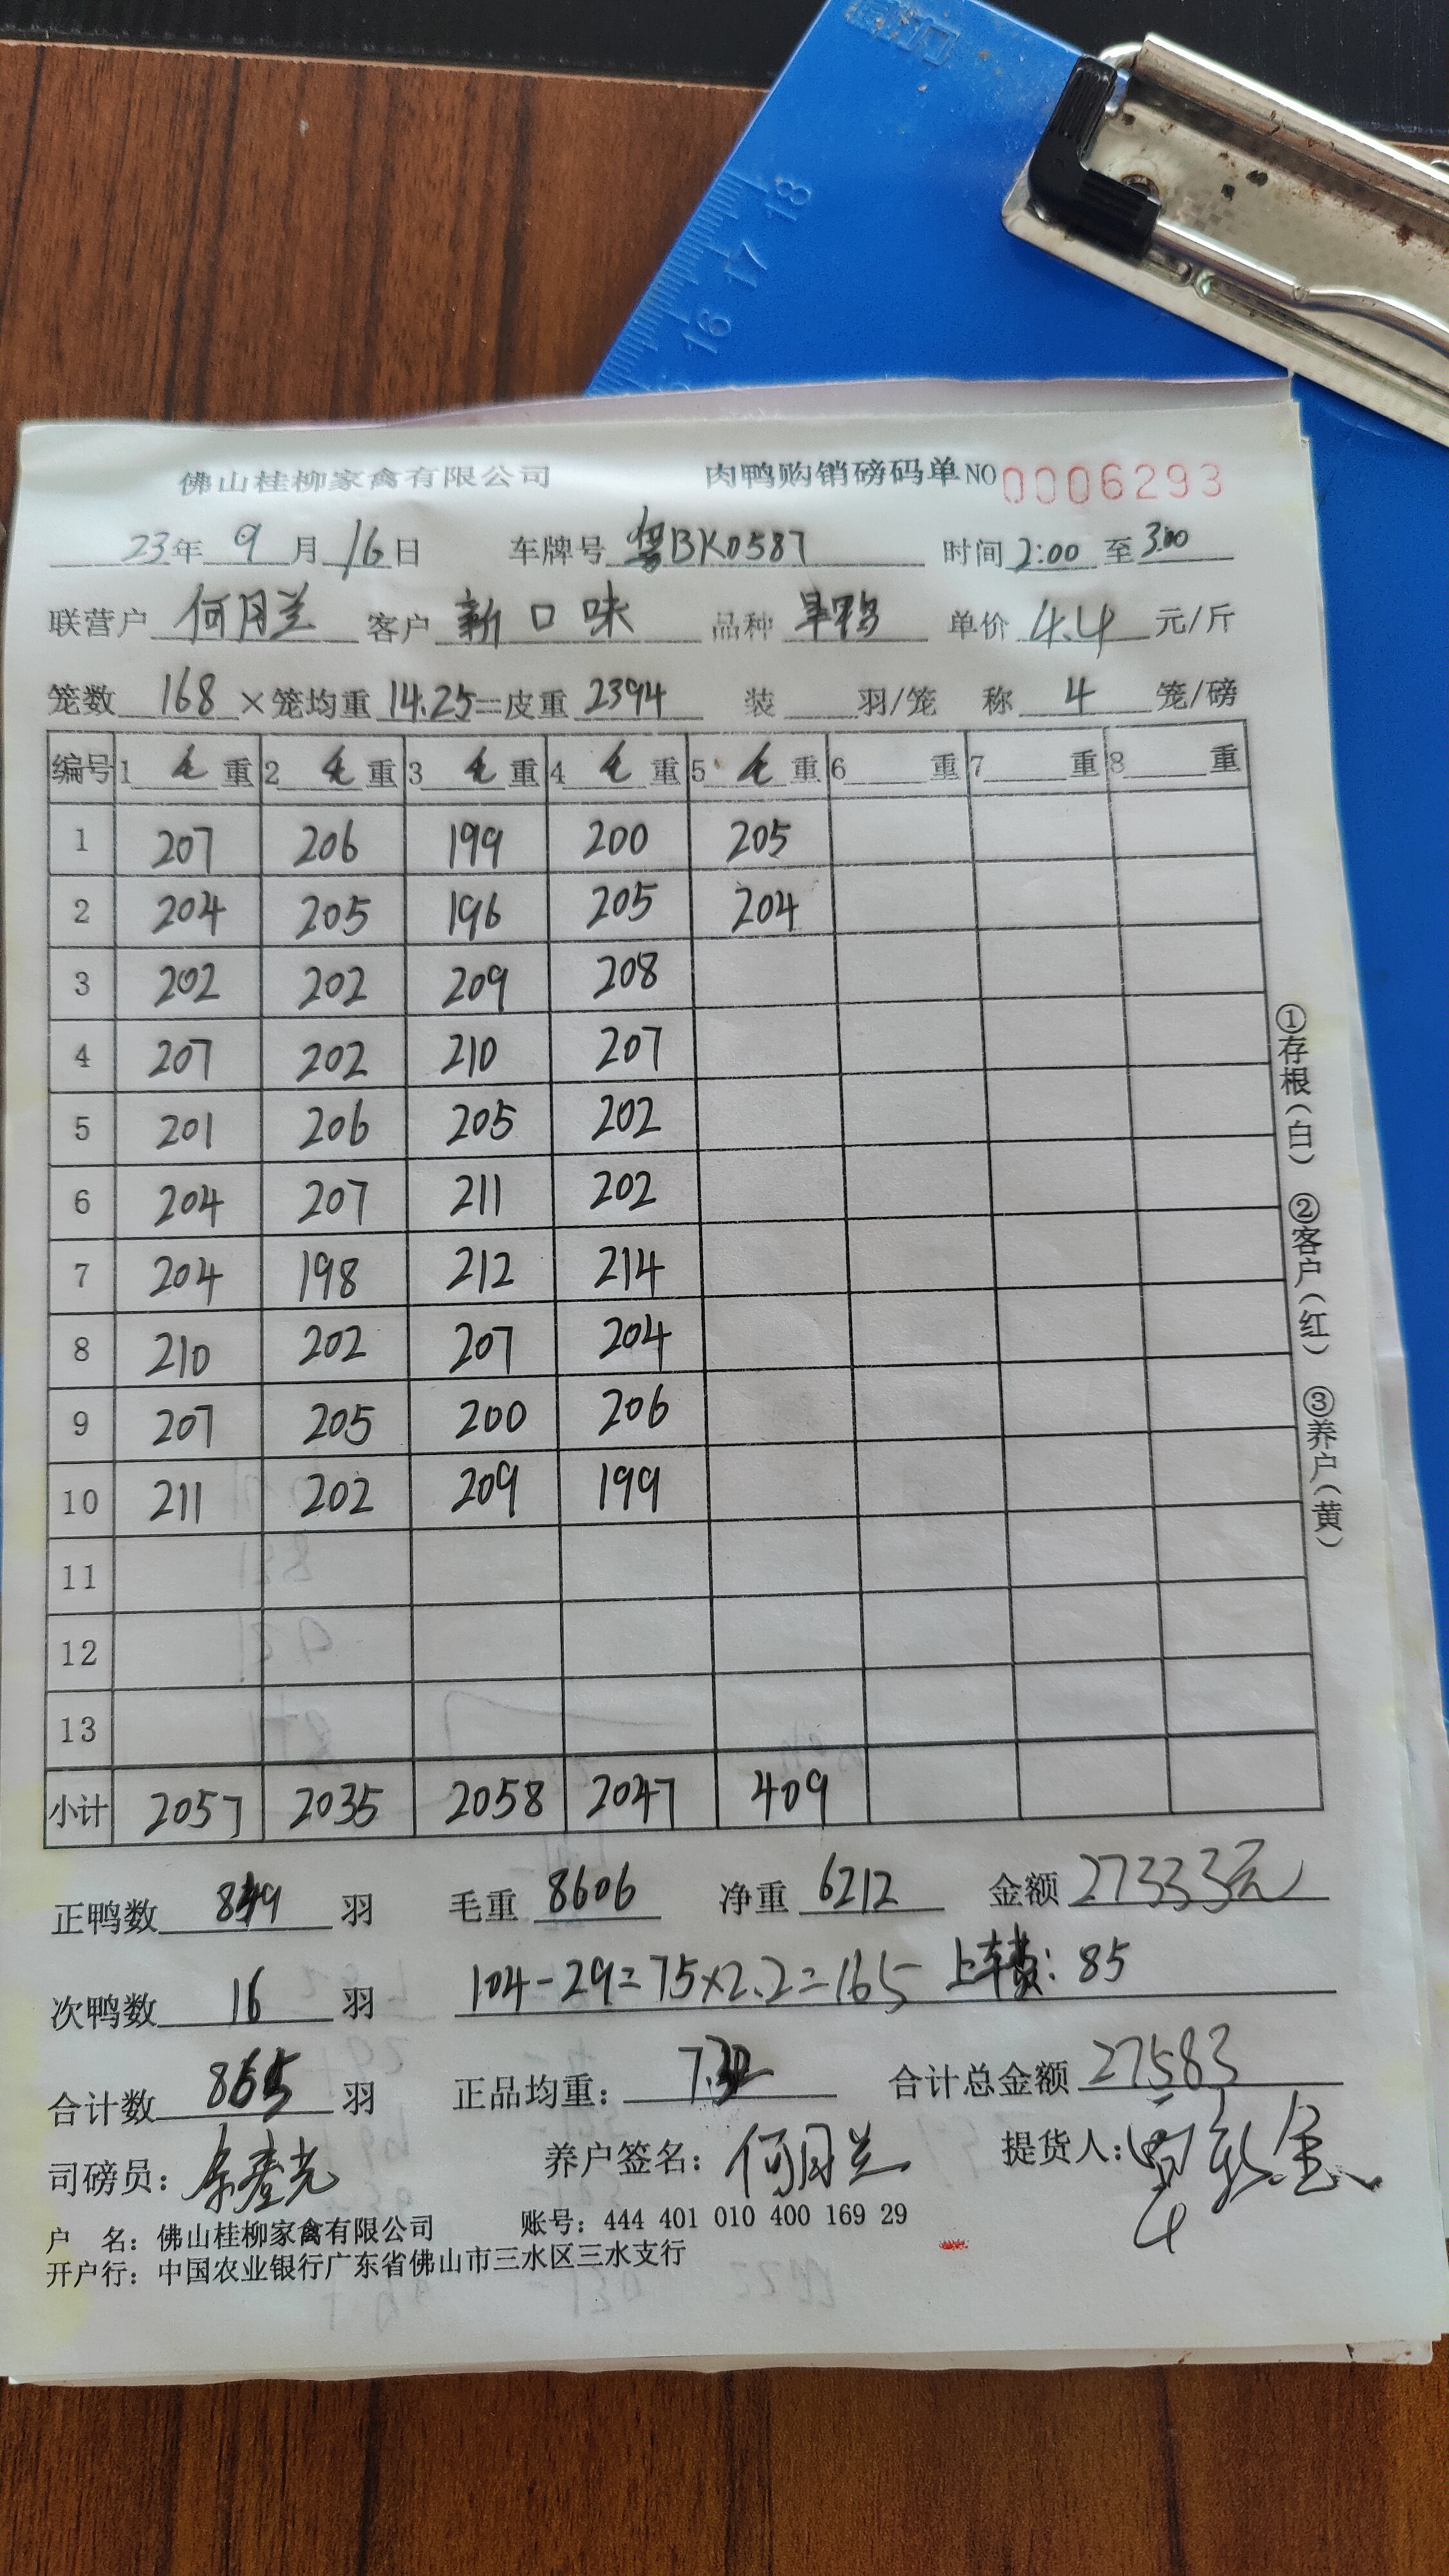 佛山桂柳家禽有限公司 肉鸭购销磅码单 NO 0006293
23年 9月 16日 车牌号 粤BK0587 时间 2:00 至 3:00
联营户 何月兰 客户 新口味 品种 旱鸭 单价 4.4 元/斤
笼数 168 ×笼均重 14.25=皮重 2394 装 羽/笼 称 4 笼/磅
编号 1 毛 重 2 毛 重 3 毛 重 4 毛 重 5 毛 重 6 重 7 重 8 重
1 207 206 199 200 205
2 204 205 196 205 204
3 202 202 209 208
4 207 202 210 207
5 201 206 205 202
6 204 207 211 202
7 204 198 212 214
8 210 202 207 204
9 207 205 200 206
10 211 202 209 199
11
12
13
小计 2057 2035 2058 2047 409
正鸭数 849 羽 毛重 8606 净重 6212 金额 27333元
次鸭数 16 羽 104-29=75×2.2=165 上车费: 85
合计数 865 羽 正品均重: 7.32 合计总金额 27583
司磅员: 养户签名: 何月兰 提货人:
户 名: 佛山桂柳家禽有限公司 账号: 444 401 010 400 169 29
开户行: 中国农业银行广东省佛山市三水区三水支行
①存根(白) ②客户(红) ③养户(黄)
16 17 18